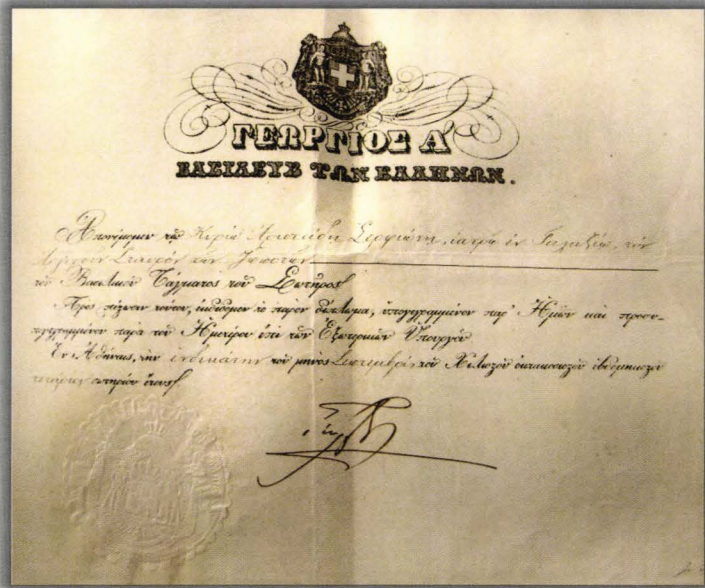 ΓΕΩΡΓΙΟΣ Α΄
ΒΑΣΙΛΕΥΣ ΤΩΝ ΕΛΛΗΝΩΝ.
Ἀπονέμομεν τῷ Κυρίῳ Ἀριστείδῃ ἰατρῷ ἐν τὸν
Σταυρὸν τῶν
τοῦ Βασιλικοῦ Τάγματος τοῦ Σωτῆρος
Πρὸς πίστωσιν τούτου, ἐκδίδομεν τὸ παρὸν δίπλωμα, ὑπογεγραμμένον παρ' Ἡμῶν καὶ προσυ-
πογεγραμμένον παρὰ τοῦ Ἡμετέρου ἐπὶ τῶν Ἐξωτερικῶν Ὑπουργοῦ
Ἐν Ἀθήναις, τὴν ἑνδεκάτην τοῦ μηνὸς Σεπτεμβρίου τοῦ Χιλιοστοῦ ὀκτακοσιοστοῦ ἑβδομηκοστοῦ
σωτηρίου ἔτους